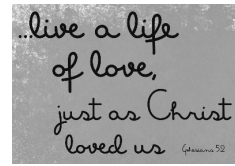 ...live a life
of love,
just as Christ
loved us
5:2